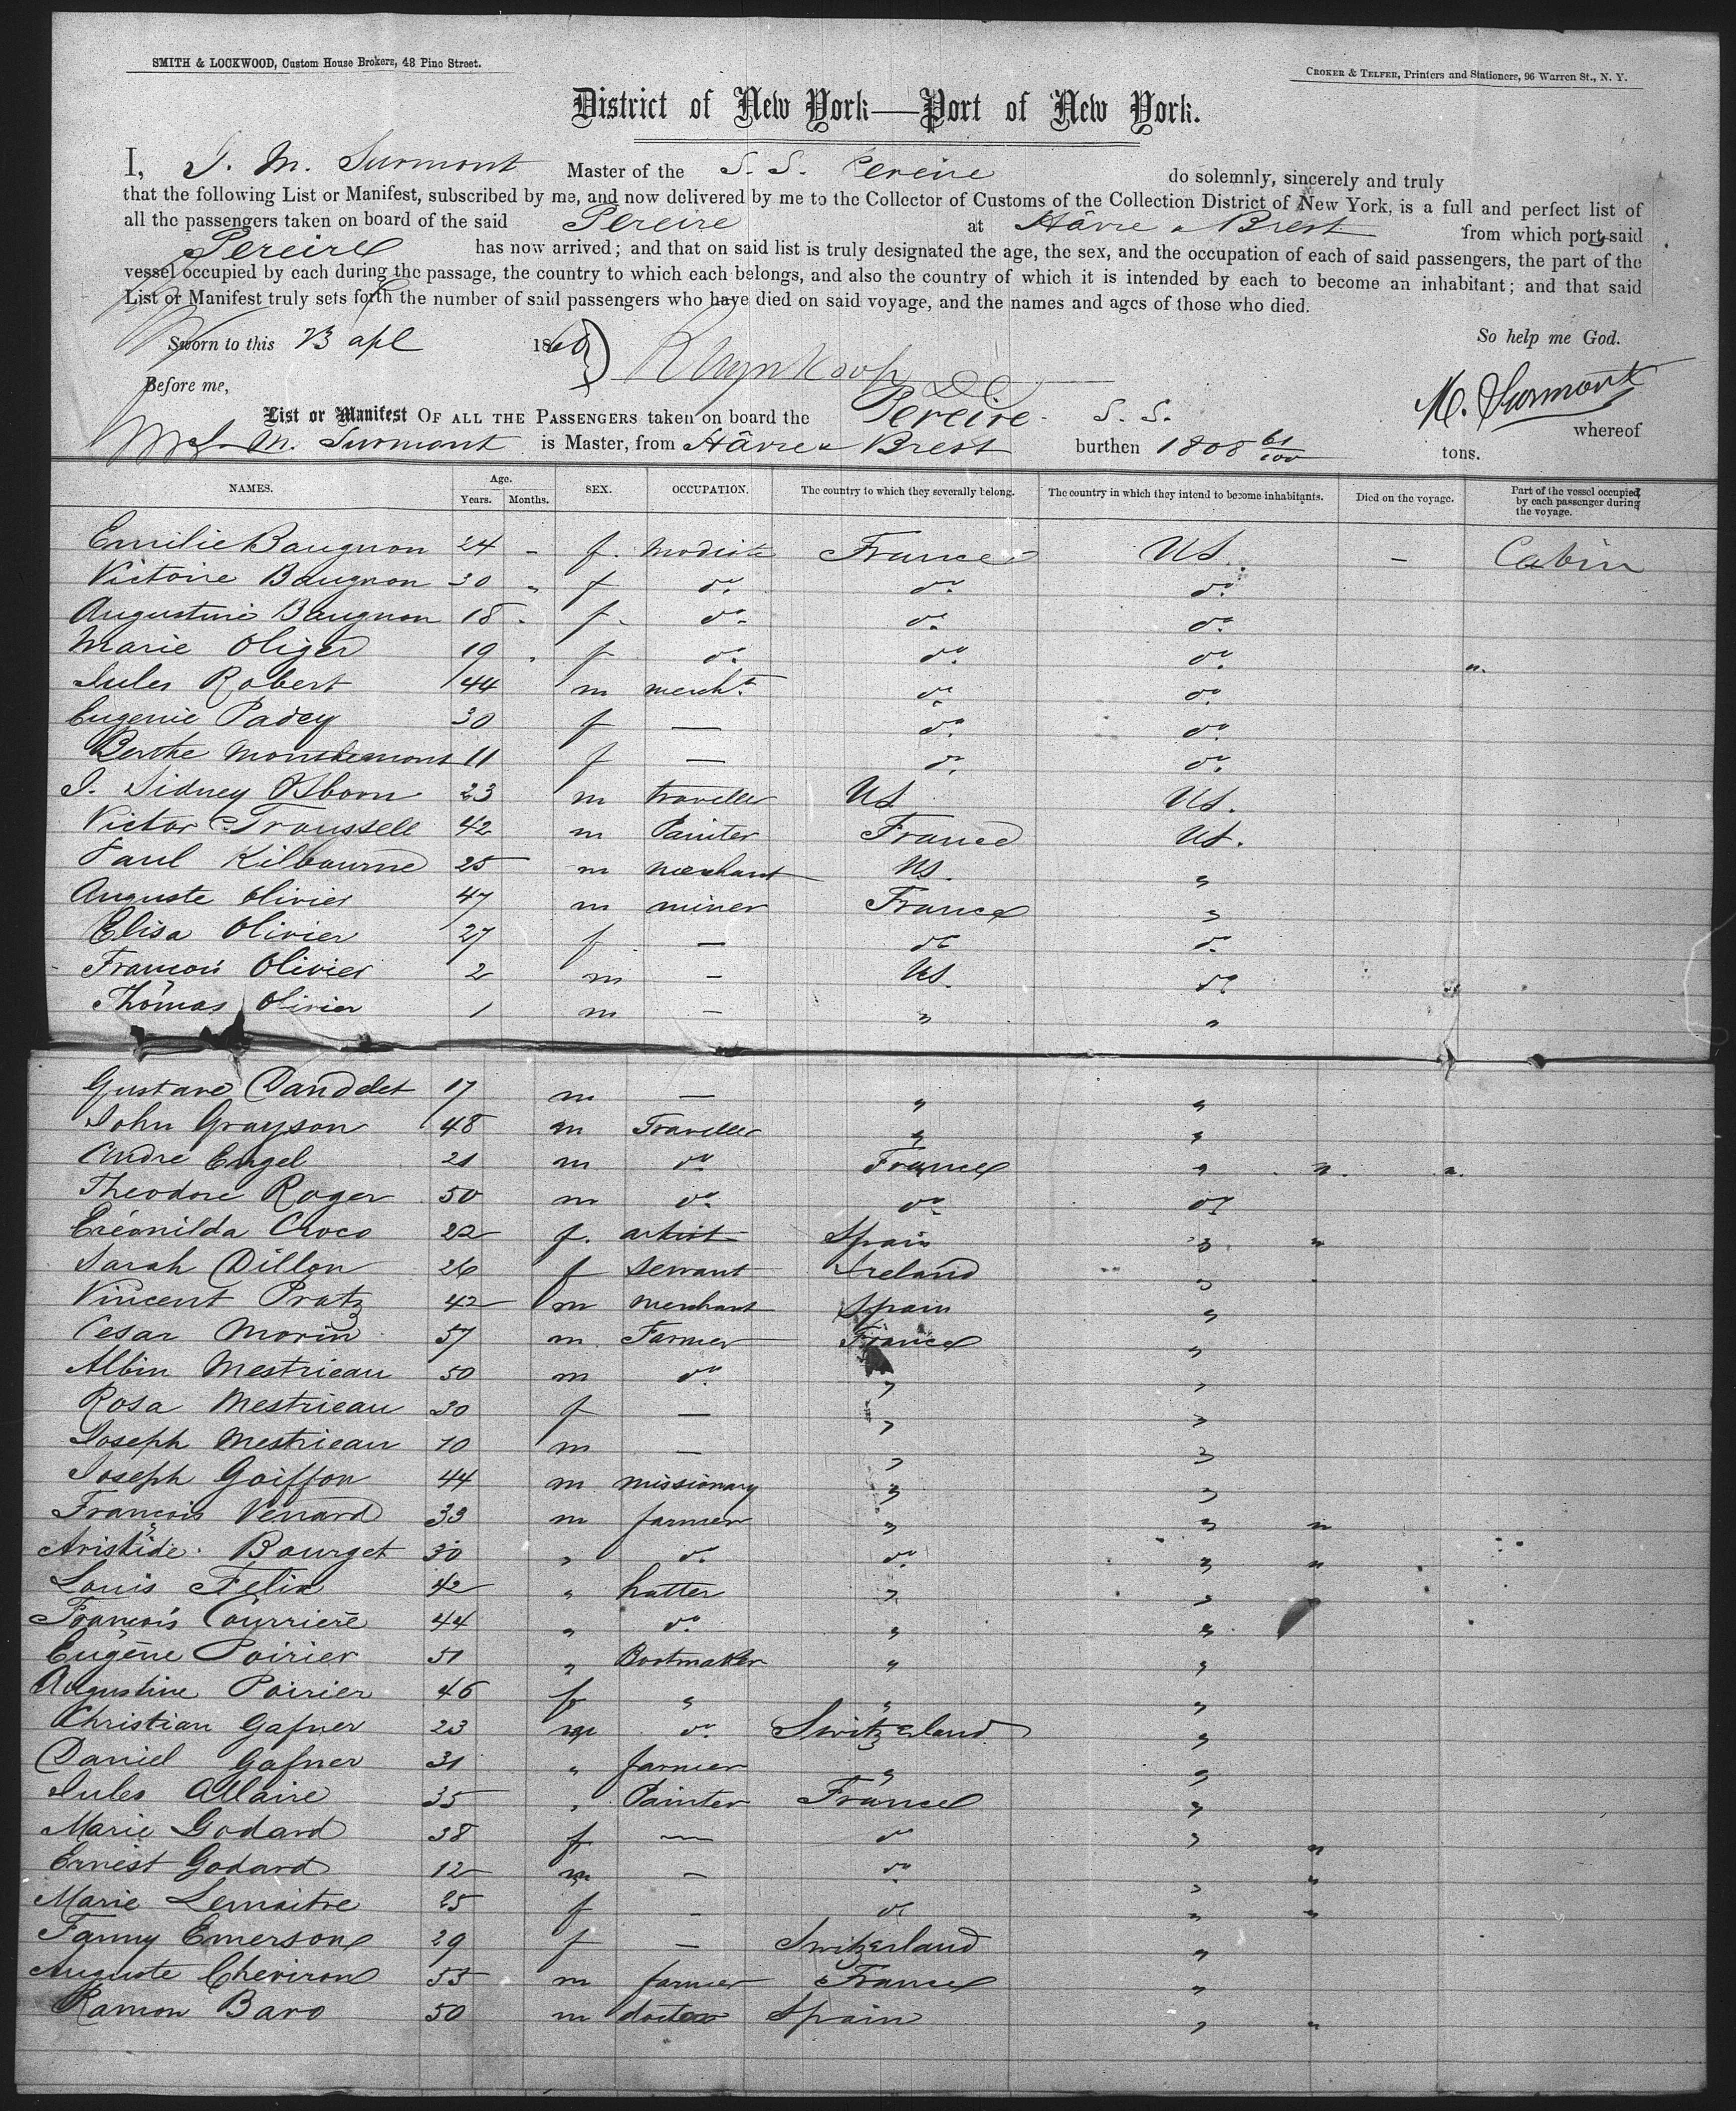 SMITH & LOCKWOOD, Custom House Brokers, 48 Pine Street.
CROKER & TELFER, Printers and Stationers, 96 Warren St., N. Y.
District of New York—Port of New York.
I, J. M. Surmont Master of the S. S. Pereire do solemnly, sincerely and truly
that the following List or Manifest, subscribed by me, and now delivered by me to the Collector of Customs of the Collection District of New York, is a full and perfect list of
all the passengers taken on board of the said Pereire at Hâvre & Brest from which ports said
Pereire has now arrived; and that on said list is truly designated the age, the sex, and the occupation of each of said passengers, the part of the
vessel occupied by each during the passage, the country to which each belongs, and also the country of which it is intended by each to become an inhabitant; and that said
List or Manifest truly sets forth the number of said passengers who have died on said voyage, and the names and ages of those who died.
Sworn to this 23 apl 186 So help me God.
Before me, M. Surmont
List or Manifest OF ALL THE PASSENGERS taken on board the Pereire S. S. whereof
J. M. Surmont is Master, from Hâvre & Brest burthen 1808 61/100 tons.
NAMES. Age. Years. Months. SEX. OCCUPATION. The country to which they severally belong. The country in which they intend to become inhabitants. Died on the voyage. Part of the vessel occupied by each passenger during the voyage.
Emilie Baugnon 24 - f. modiste France US. - Cabin
Victoire Baugnon 30 " f do. do. do.
Augustine Baugnon 18 - f. do. do. do.
Marie Oliger 19 . f do. do. do. "
Jules Robert 44 m mercht. do. do.
Eugenie Padey 30 f — do. do.
Berthe 11 f — do. do.
J. Sidney Osborn 23 m traveller US US.
Victor Troussell 42 m Painter France US.
Paul Kilbourne 25 m merchant US. "
Auguste Olivier 47 m miner France "
Elisa Olivier 27 f — do do.
François Olivier 2 m — US. do
Thomas Olivier 1 m — " "
Gustave Dauddet 17 m — " "
John Grayson 48 m Traveller " "
Andre Engel 21 m do. France " " "
Theodore Roger 50 m do. do. do
Croco 22 f. artist Spain " "
Sarah Dillon 26 f servant Ireland "
Vincent Pratz 42 m merchant Spain "
Cesar Morin 57 m Farmer France "
Albin Mestrieau 50 m do. " "
Rosa Mestrieau 30 f — " "
Joseph Mestrieau 10 m — " "
Joseph Goiffon 44 m missionary " "
François Venard 33 m farmer " " "
Aristide Bourget 30 " do. do. " "
Louis Felix 42 " hatter " " "
François Courriere 44 " do. " "
Eugène Poirier 51 " Bootmaker " "
Augustine Poirier 46 f " " "
Christian Gafner 23 m do. Switzerland "
Daniel Gafner 31 " farmer " "
Jules Allaire 35 " Painter France "
Marie Godard 38 f — do " "
Ernest Godard 12 m — do. " "
Marie Lemaitre 25 f - do " "
Fanny Emerson 29 f — Switzerland "
Auguste Cheviron 55 m farmer France "
Ramon Baro 50 m doctor Spain " "